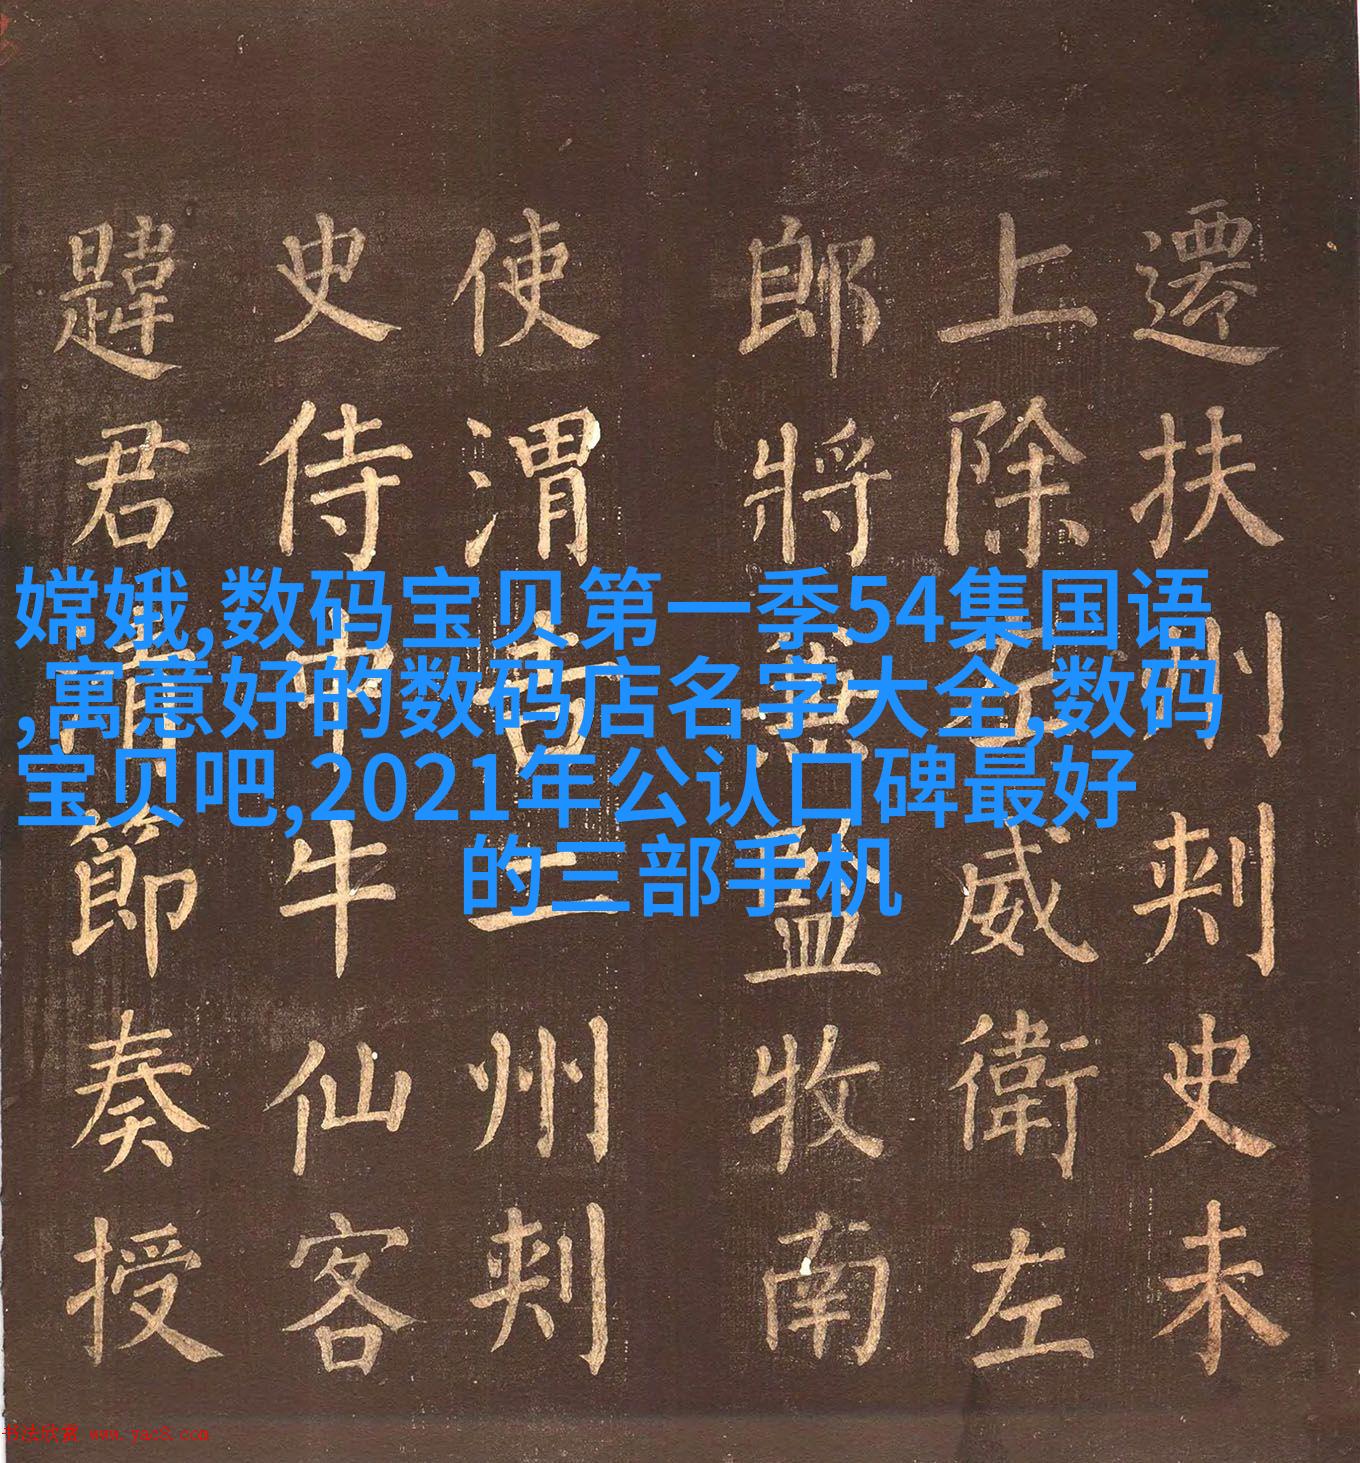 遷扶州刺史未
上除右威衛左
郎將兼監牧南
使渭吉二州刺
史侍中牛仙客
韙君清節奏授
嫦娥,数码宝贝第一季54集国语
,寓意好的数码店名字大全,数码
宝贝吧,2021年公认口碑最好
的三部手机
书法欣赏 www.yac8.com